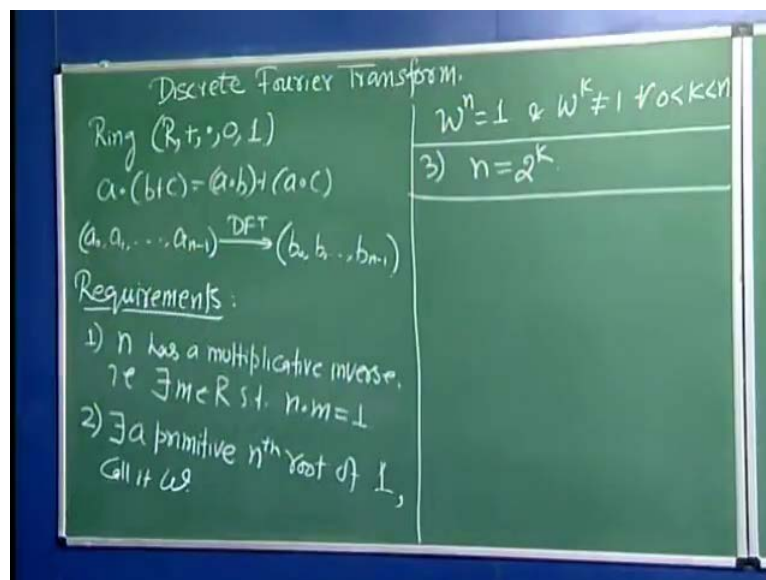 Discrete Fourier Transform.
Ring (R, +, ·, 0, 1)
a·(b+c) = (a·b)+(a·c)
(a₀, a₁, ..., aₙ₋₁) DFT→ (b₀, b₁, .., bₙ₋₁)
Requirements:
1) n has a multiplicative inverse.
ie ∃m∈R s.t. n·m=1
2) ∃ a primitive nᵗʰ root of 1,
Call it ω.
ωⁿ=1 & ωᵏ≠1 ∀ 0<k<n
3) n=2ᵏ.